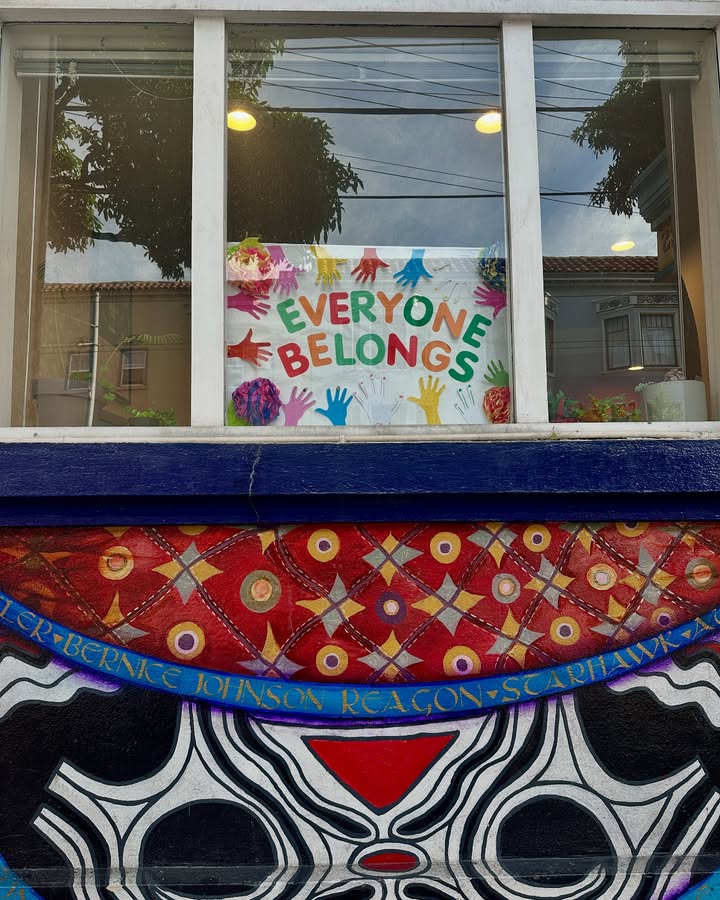 EVERYONE
BELONGS
LER▾BERNICE JOHNSON REAGON▾STARHAWK▾